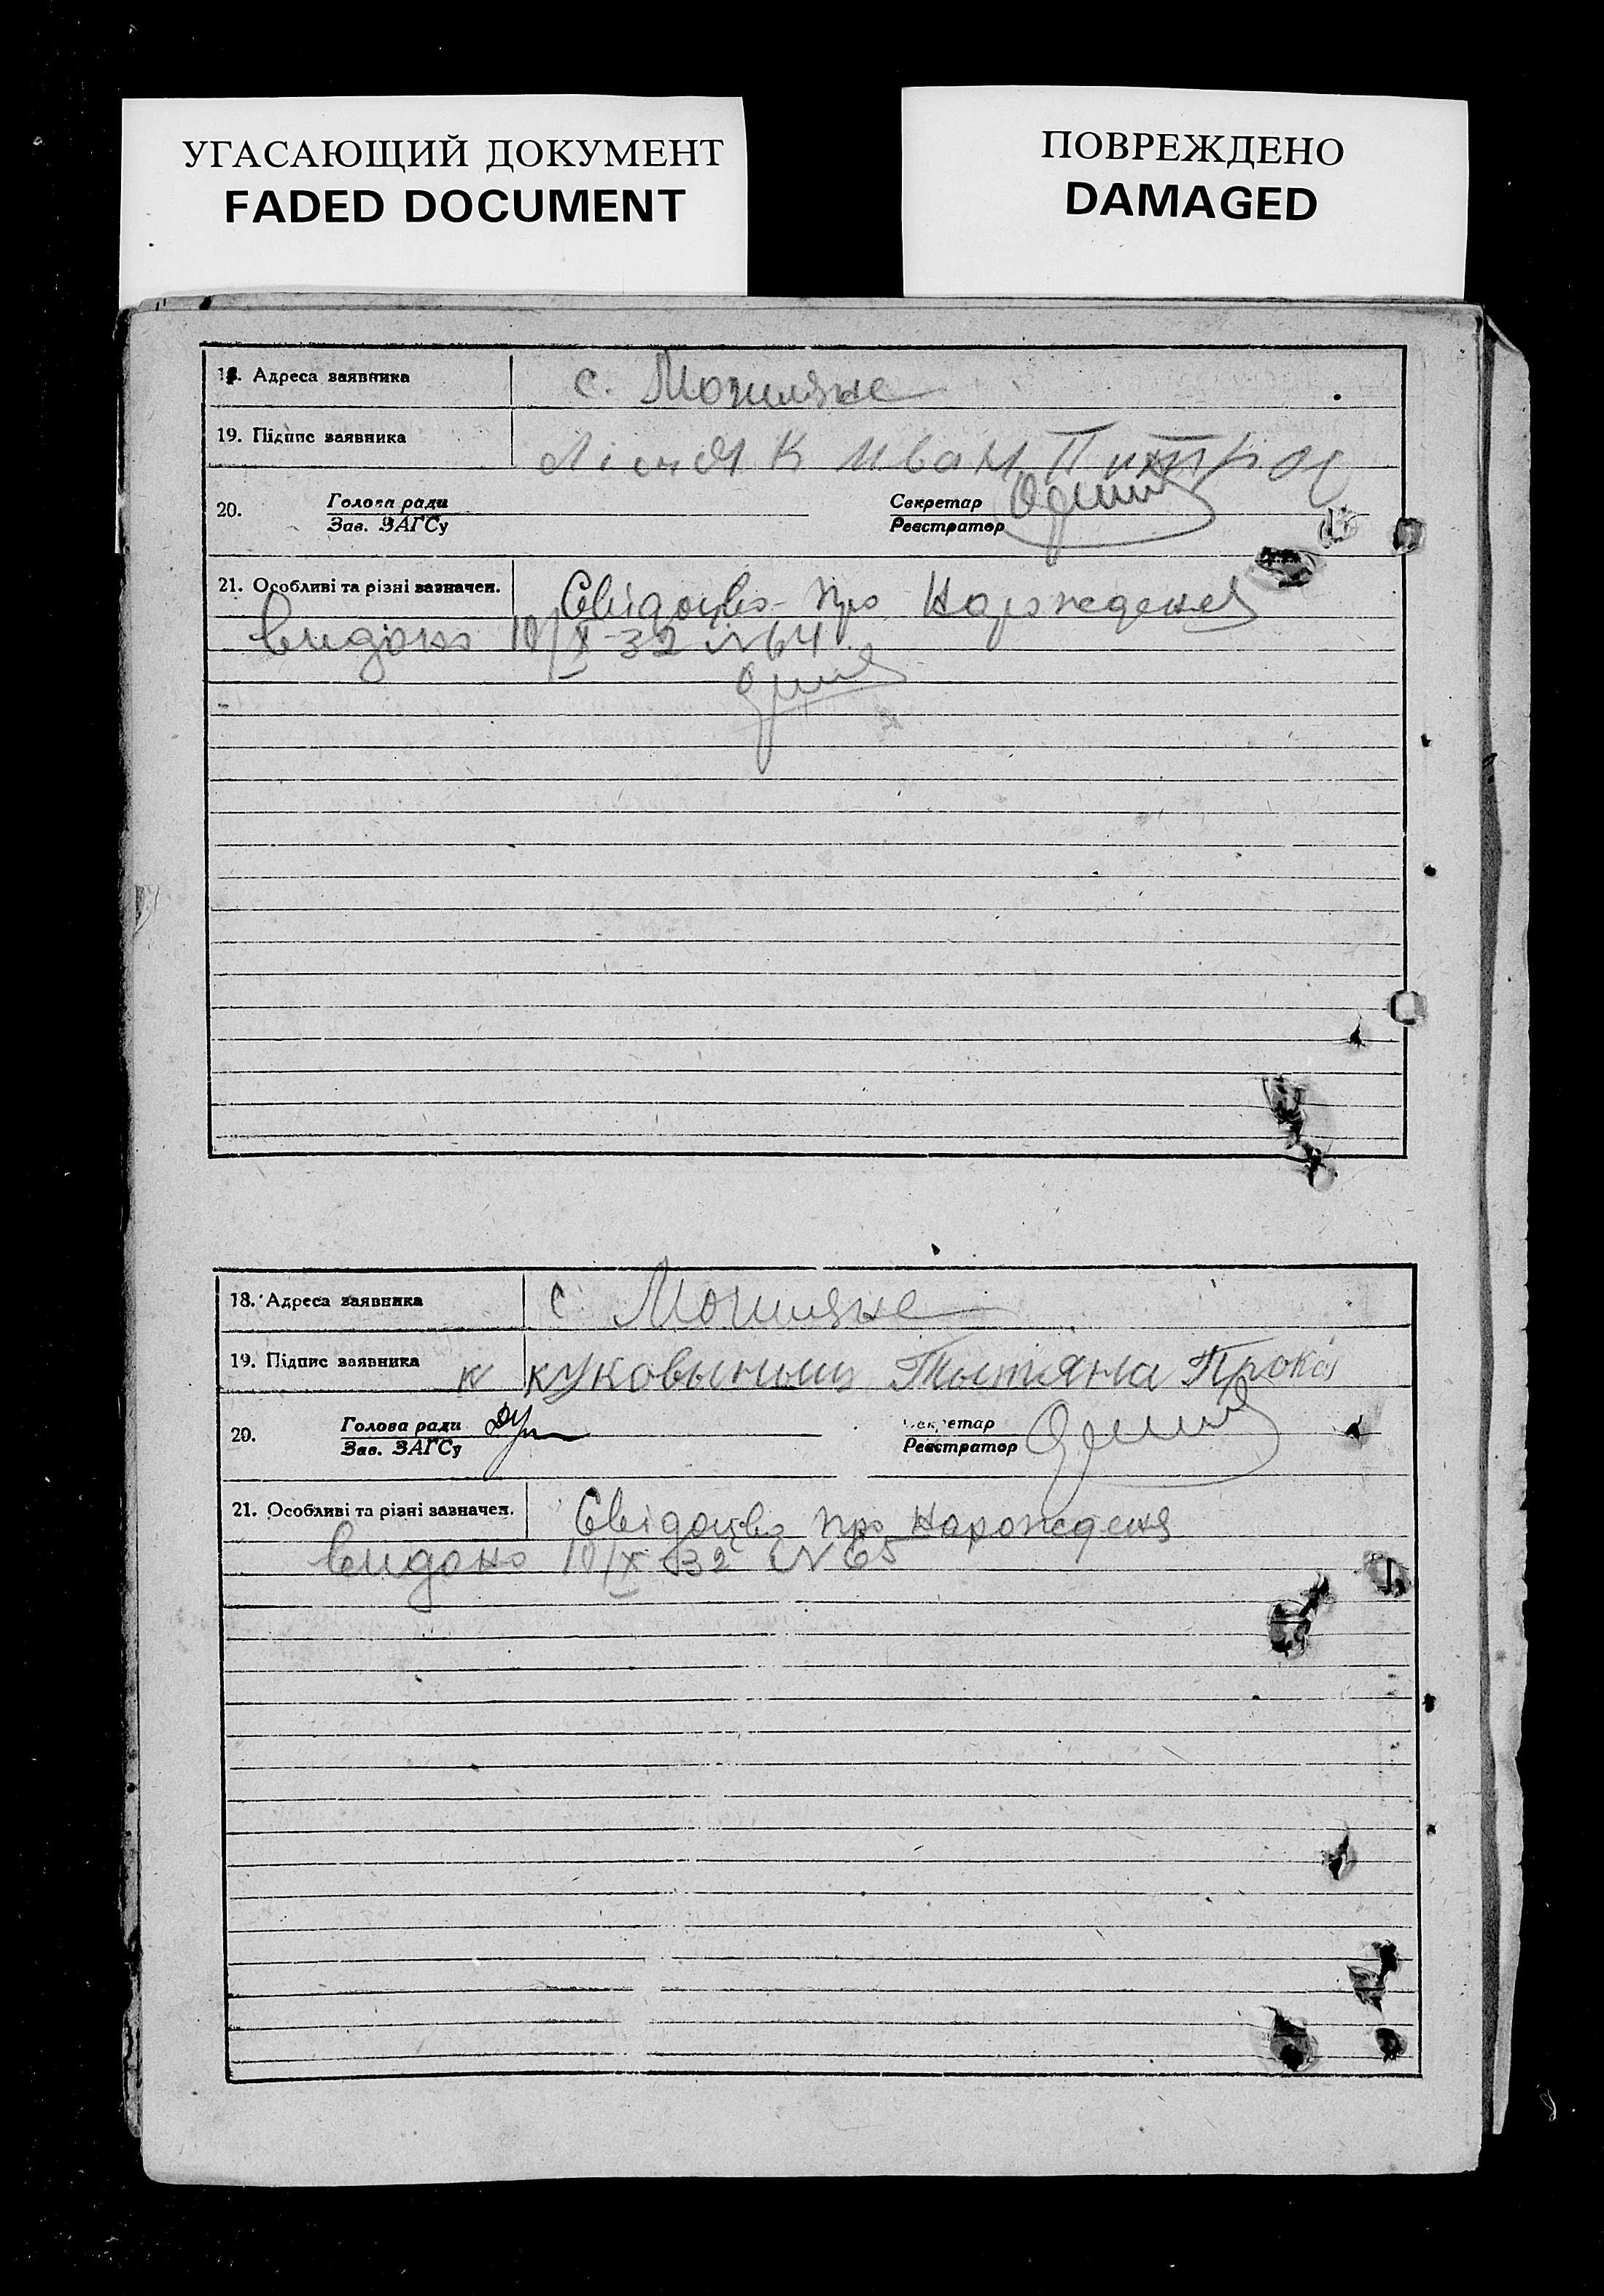 УГАСАЮЩИЙ ДОКУМЕНТ
FADED DOCUMENT
ПОВРЕЖДЕНО
DAMAGED
18. Адреса заявника с. Могиляне
19. Підпис заявника Иван
20. Голова ради Секретар
Зав. ЗАГСу Реєстратор
21. Особливі та різні зазначен. Свідоцво про Нарожденя
видано 10/X-32 N 64
18. Адреса заявника с. Могиляне
19. Підпис заявника Тытяна Проко
20. Голова ради Секретар
Зав. ЗАГСу Реєстратор
21. Особливі та різні зазначен. Свідоцво про Нарожденя
видано 10/X-32 N 65